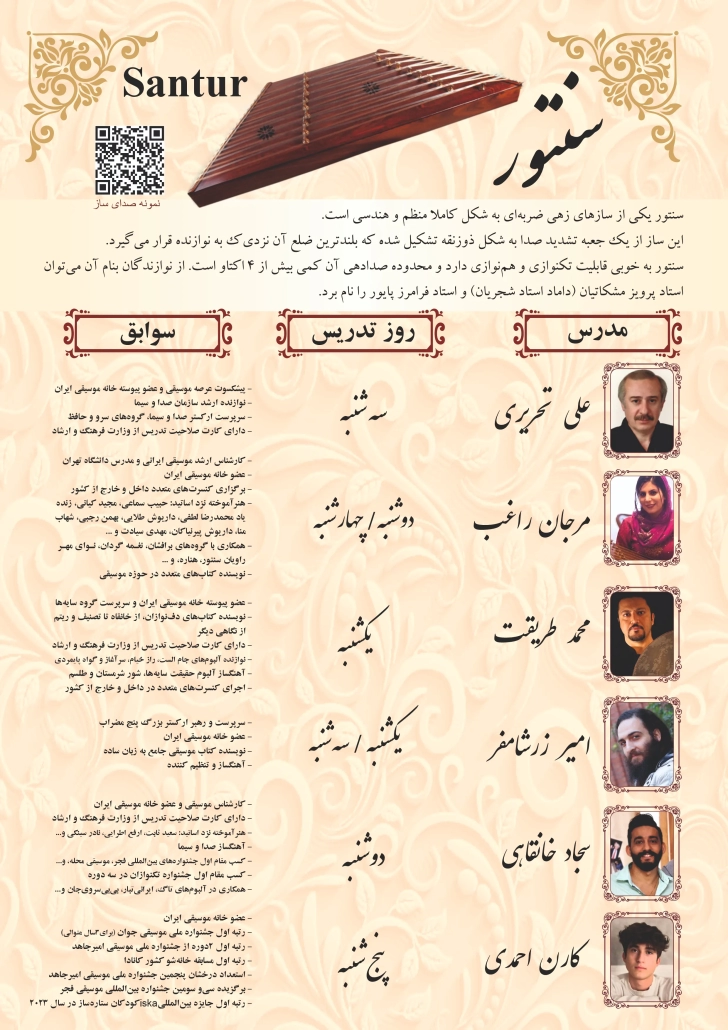 Santur
سنتور
نمونه صدای ساز
سنتور یکی از سازهای زهی ضربه‌ای به شکل کاملا منظم و هندسی است.
این ساز از یک جعبه تشدید صدا به شکل ذوزنقه تشکیل شده که بلندترین ضلع آن نزدیک به نوازنده قرار می‌گیرد.
سنتور به خوبی قابلیت تکنوازی و هم‌نوازی دارد و محدوده صدادهی آن کمی بیش از ۴ اکتاو است. از نوازندگان بنام آن می‌توان
استاد پرویز مشکاتیان (داماد استاد شجریان) و استاد فرامرز پایور را نام برد.
مدرس
روز تدریس
سوابق
علی تحریری
سه شنبه
- پیشکسوت عرصه موسیقی و عضو پیوسته خانه موسیقی ایران
- نوازنده ارشد سازمان صدا و سیما
- سرپرست ارکستر صدا و سیما، گروه‌های سرو و حافظ
- دارای کارت صلاحیت تدریس از وزارت فرهنگ و ارشاد
مرجان راغب
دوشنبه / چهارشنبه
- کارشناس ارشد موسیقی ایرانی و مدرس دانشگاه تهران
- عضو خانه موسیقی ایران
- برگزاری کنسرت‌های متعدد داخل و خارج از کشور
- هنرآموخته نزد اساتید: حبیب سماعی، مجید کیانی، زنده
یاد محمدرضا لطفی، داریوش طلایی، بهمن رجبی، شهاب
منا، داریوش پیرنیاکان، مهدی سیادت و ...
- همکاری با گروه‌های برافشان، نغمه گردان، نوای مهر
راویان سنتور، هناره، و ...
- نویسنده کتاب‌های متعدد در حوزه موسیقی
محمد طریقت
یکشنبه
- عضو پیوسته خانه موسیقی ایران و سرپرست گروه سایه‌ها
- نویسنده کتاب‌های دف‌نوازان، از خانقاه تا تصنیف و ریتم
از نگاهی دیگر
- دارای کارت صلاحیت تدریس از وزارت فرهنگ و ارشاد
- نوازنده آلبوم‌های جام الست، راز خیام، سرآغاز و گواه پایمردی
- آهنگساز آلبوم حقیقت سایه‌ها، شور شرمستان و طلسم
- اجرای کنسرت‌های متعدد در داخل و خارج از کشور
امیر زرشامفر
یکشنبه / سه شنبه
- سرپرست و رهبر ارکستر بزرگ پنج مضراب
- عضو خانه موسیقی ایران
- نویسنده کتاب موسیقی جامع به زبان ساده
- آهنگساز و تنظیم کننده
سجاد خانقاهی
دوشنبه
- کارشناس موسیقی و عضو خانه موسیقی ایران
- دارای کارت صلاحیت تدریس از وزارت فرهنگ و ارشاد
- هنرآموخته نزد اساتید: سعید ثابت، ارفع اطرایی، نادر سینکی و...
- آهنگساز صدا و سیما
- کسب مقام اول جشنواره‌های بین‌المللی فجر، موسیقی محله، و...
- کسب مقام اول جشنواره تکنوازان در سه دوره
- همکاری در آلبوم‌های تاگ، ایرانی‌تبار، بی‌بی‌سروی‌جان و...
کارن احمدی
پنج شنبه
- عضو خانه موسیقی ایران
- رتبه اول جشنواره ملی موسیقی جوان (برای ۳سال متوالی)
- رتبه اول ۲دوره از جشنواره ملی موسیقی امیرجاهد
- رتبه اول مسابقه خانه‌شو کشور کانادا
- استعداد درخشان پنجمین جشنواره ملی موسیقی امیرجاهد
- برگزیده سی‌و سومین جشنواره بین‌المللی موسیقی فجر
- رتبه اول جایزه بین‌المللی iska کودکان ستاره‌ساز در سال ۲۰۲۳